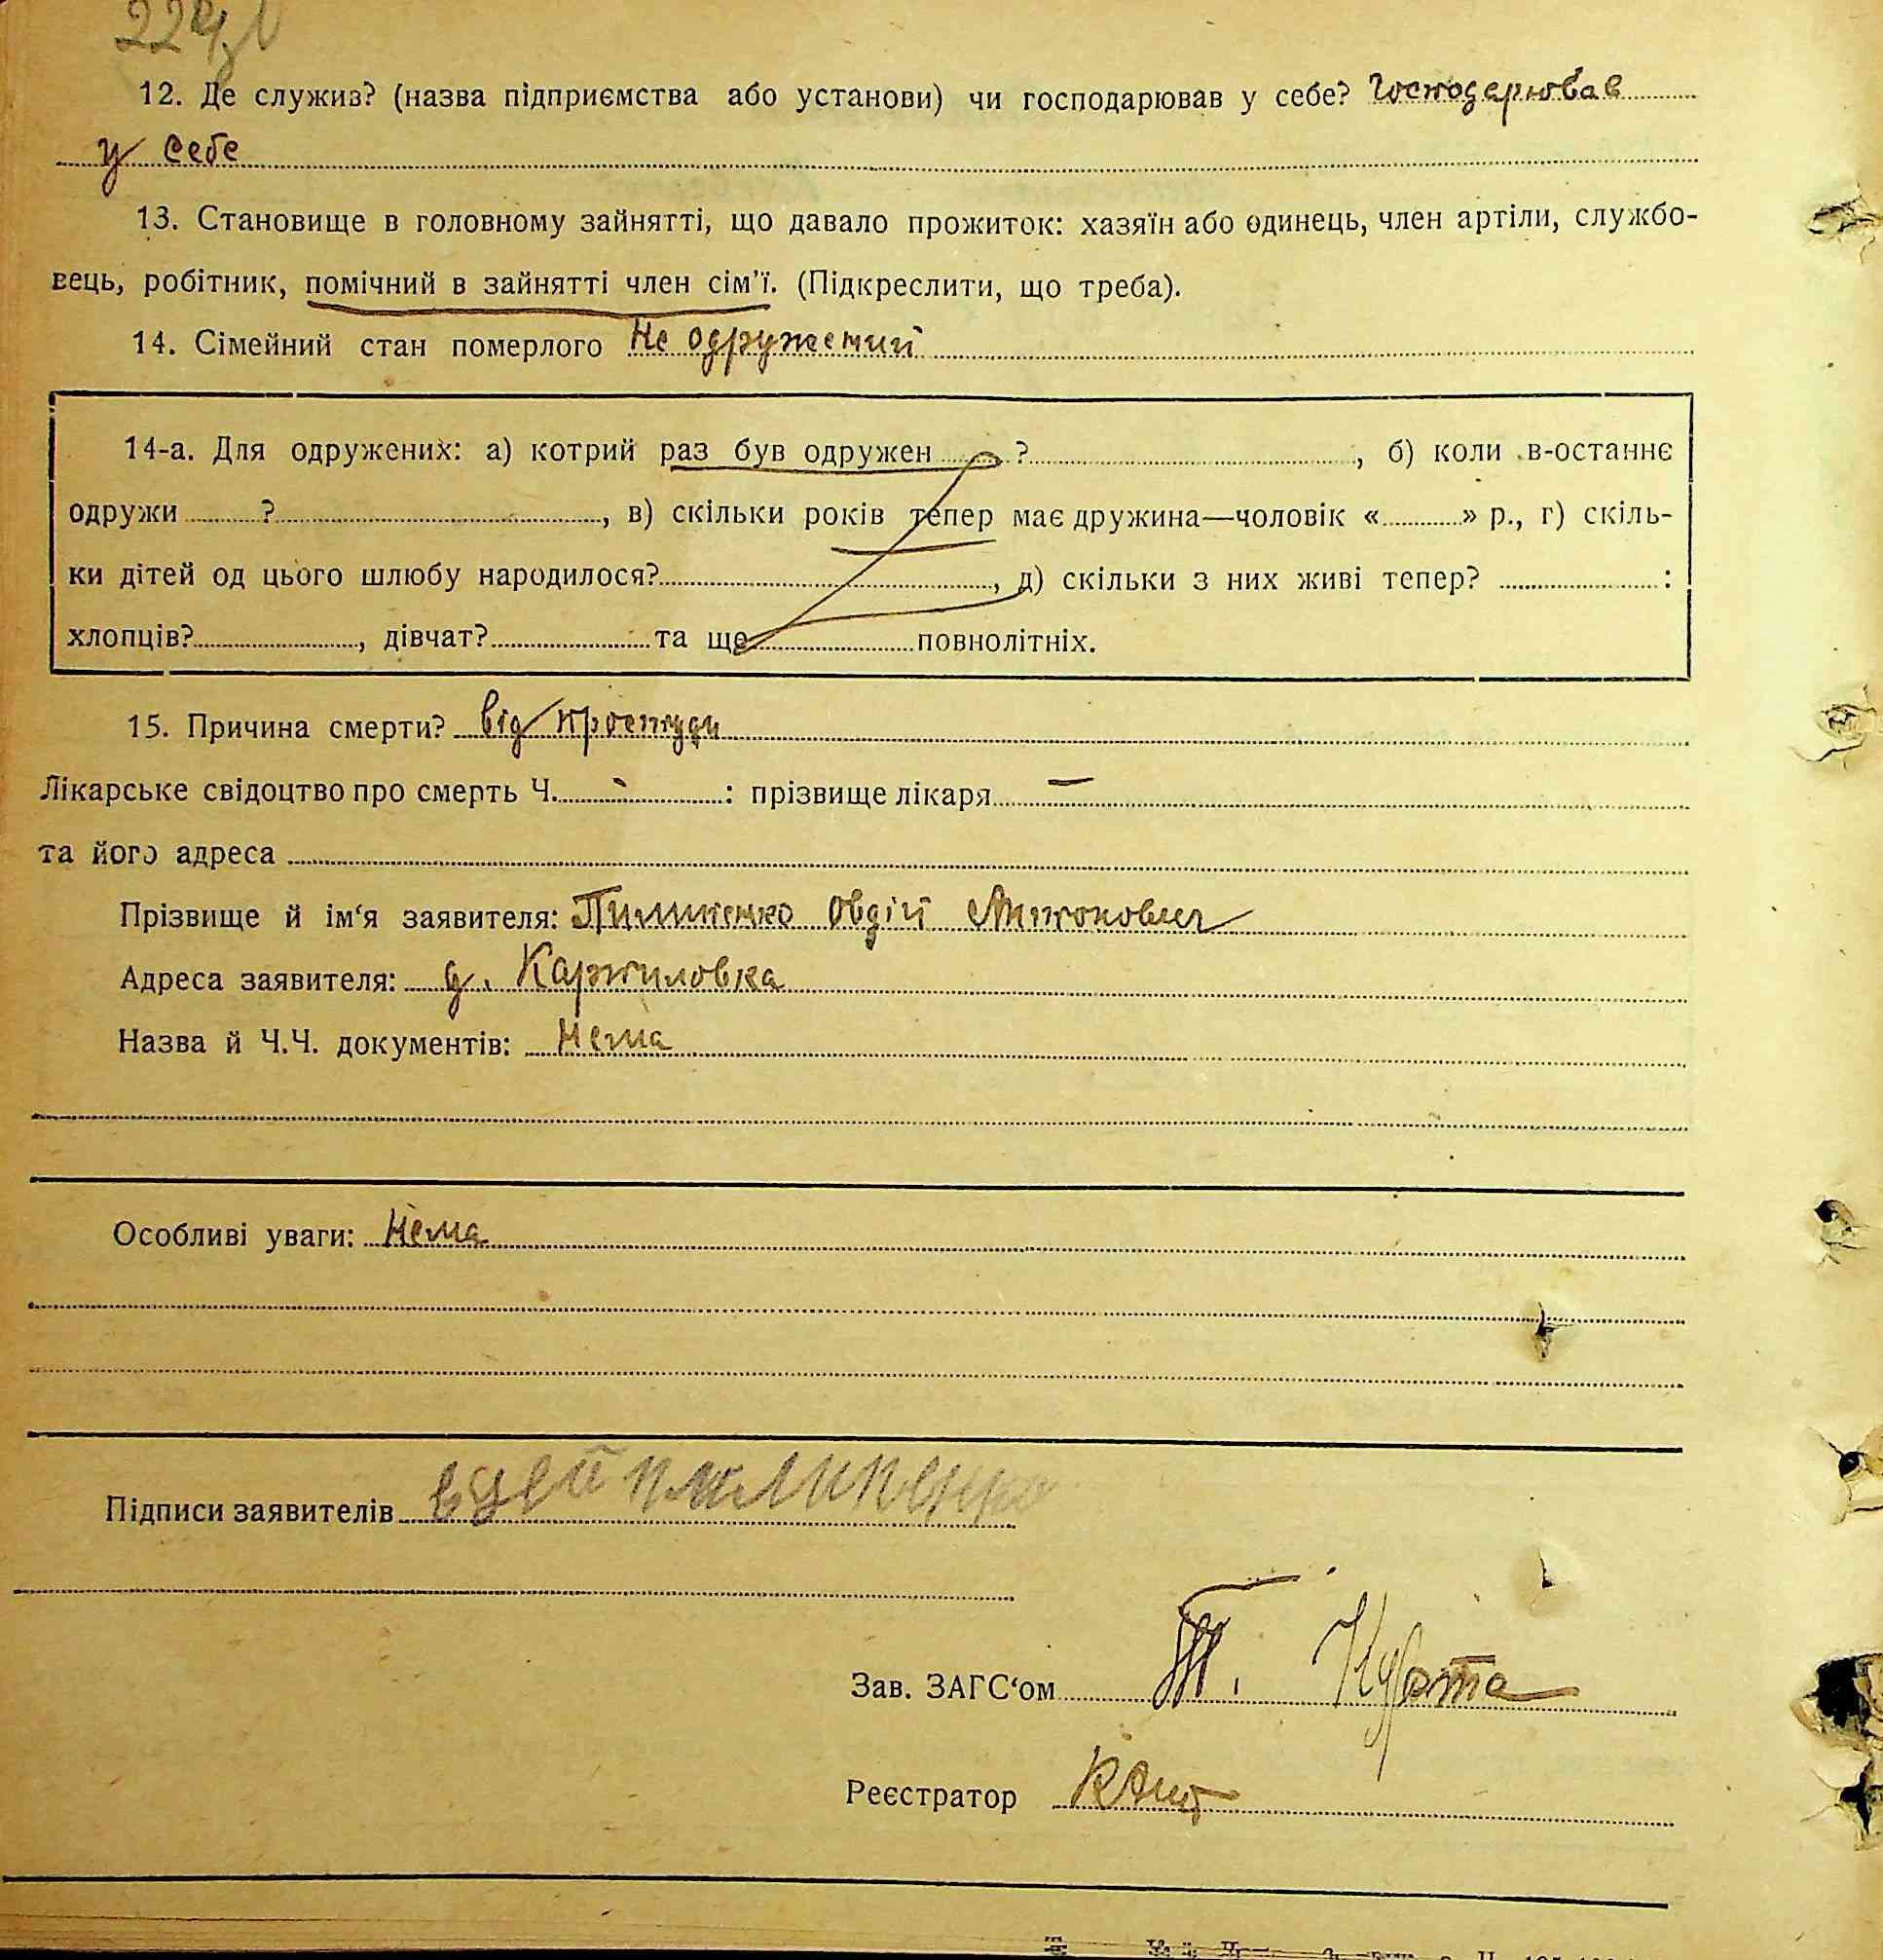 12. Де служив? (назва підприємства або установи) чи господарював у себе? Господарював
у себе
13. Становище в головному зайнятті, що давало прожиток: хазяїн або одинець, член артіли, службо-
вець, робітник, помічний в зайнятті член сім'ї. (Підкреслити, що треба).
14. Сімейний стан померлого Не одружений
14-а. Для одружених: а) котрий раз був одружен ?, б) коли в-останнє
одружи ?, в) скільки років тепер має дружина—чоловік « » р., г) скіль-
ки дітей од цього шлюбу народилося?, д) скільки з них живі тепер? :
хлопців?, дівчат? та ще повнолітніх.
15. Причина смерти? від простуди
Лікарське свідоцтво про смерть Ч. : прізвище лікаря —
та його адреса
Прізвище й ім'я заявителя: Пилипенко Овдій Антонович
Адреса заявителя: д. Карпиловка
Назва й Ч.Ч. документів: Нема
Особливі уваги: Нема
Підписи заявителів Пилипенко
Зав. ЗАГС'ом
Реєстратор